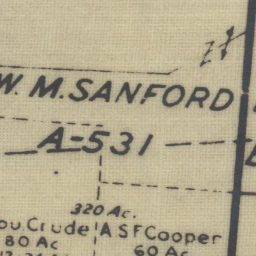 W. M. SANFORD
A-531
320 Ac.
ou. Crude A S F Cooper
80 Ac 60 Ac.